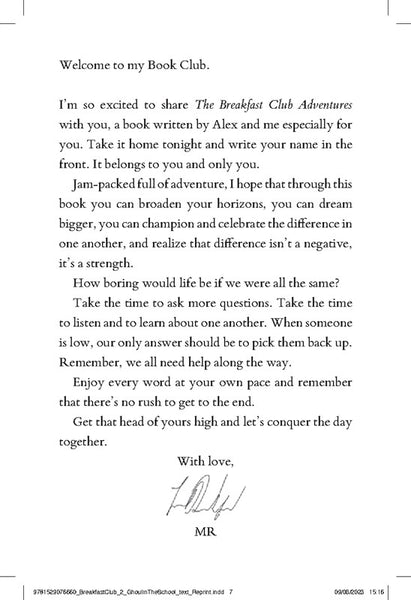 Welcome to my Book Club.
I’m so excited to share The Breakfast Club Adventures
with you, a book written by Alex and me especially for
you. Take it home tonight and write your name in the
front. It belongs to you and only you.
Jam-packed full of adventure, I hope that through this
book you can broaden your horizons, you can dream
bigger, you can champion and celebrate the difference in
one another, and realize that difference isn’t a negative,
it’s a strength.
How boring would life be if we were all the same?
Take the time to ask more questions. Take the time
to listen and to learn about one another. When someone
is low, our only answer should be to pick them back up.
Remember, we all need help along the way.
Enjoy every word at your own pace and remember
that there’s no rush to get to the end.
Get that head of yours high and let’s conquer the day
together.
With love,
MR
9781529076660_BreakfastClub_2_GhoulInTheSchool_text_Reprint.indd 7 09/08/2023 15:16